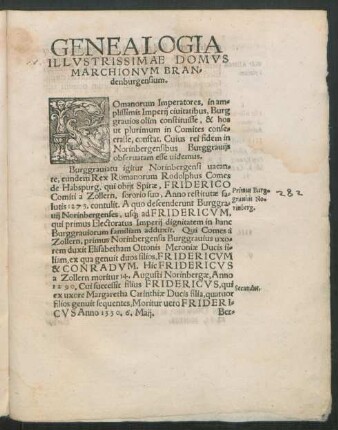 GENEALOGIA
ILLVSTRISSIMAE DOMVS
MARCHIONVM BRAN-
denburgensium.
ROmanorum Imperatores, in am
plissimis Imperij ciuitatibus, Burg
grauios olim constituisse, & hos
ut plurimum in Comites conse-
crasse, constat. Cuius rei fidem in
Norinbergensibus Burggrauijs
obseruatam esse uidemus.
Burggrauiatu igitur Norinbergensi uacan-
te, eundem Rex Romanorum Rodolphus Comes
de Habspurg, qui obijt Spiræ, FRIDERICO
Comiti a Zollern, sororio suo, Anno restitutæ sa-
lutis 1273. contulit. A quo descenderunt Burggra
uij Norinbergenses, usq; ad FRIDERICVM,
qui primus Electoratus Imperij dignitatem in hanc
Burggrauiorum familiam adduxit. Qui Comes á
Zollern, primus Norinbergensis Burggrauius uxo
rem duxit Elisabetham Ottonis Meroniæ Ducis fi-
liam, ex qua genuit duos filios, FRIDERICVM
& CONRADVM. Hic FRIDERICVS
a Zollern moritur 14. Augusti Norinbergæ, Anno
1290. Cui successit filius FRIDERICVS, qui
ex uxore Margaretha Carinthiæ Ducis filia, quatuor
filios genuit sequentes, Moritur uero FRIDERI-
CVS Anno 1330. 6. Maij.
Bez-
Primus Burg-
grauius No-
rinberg.
282
secundus.